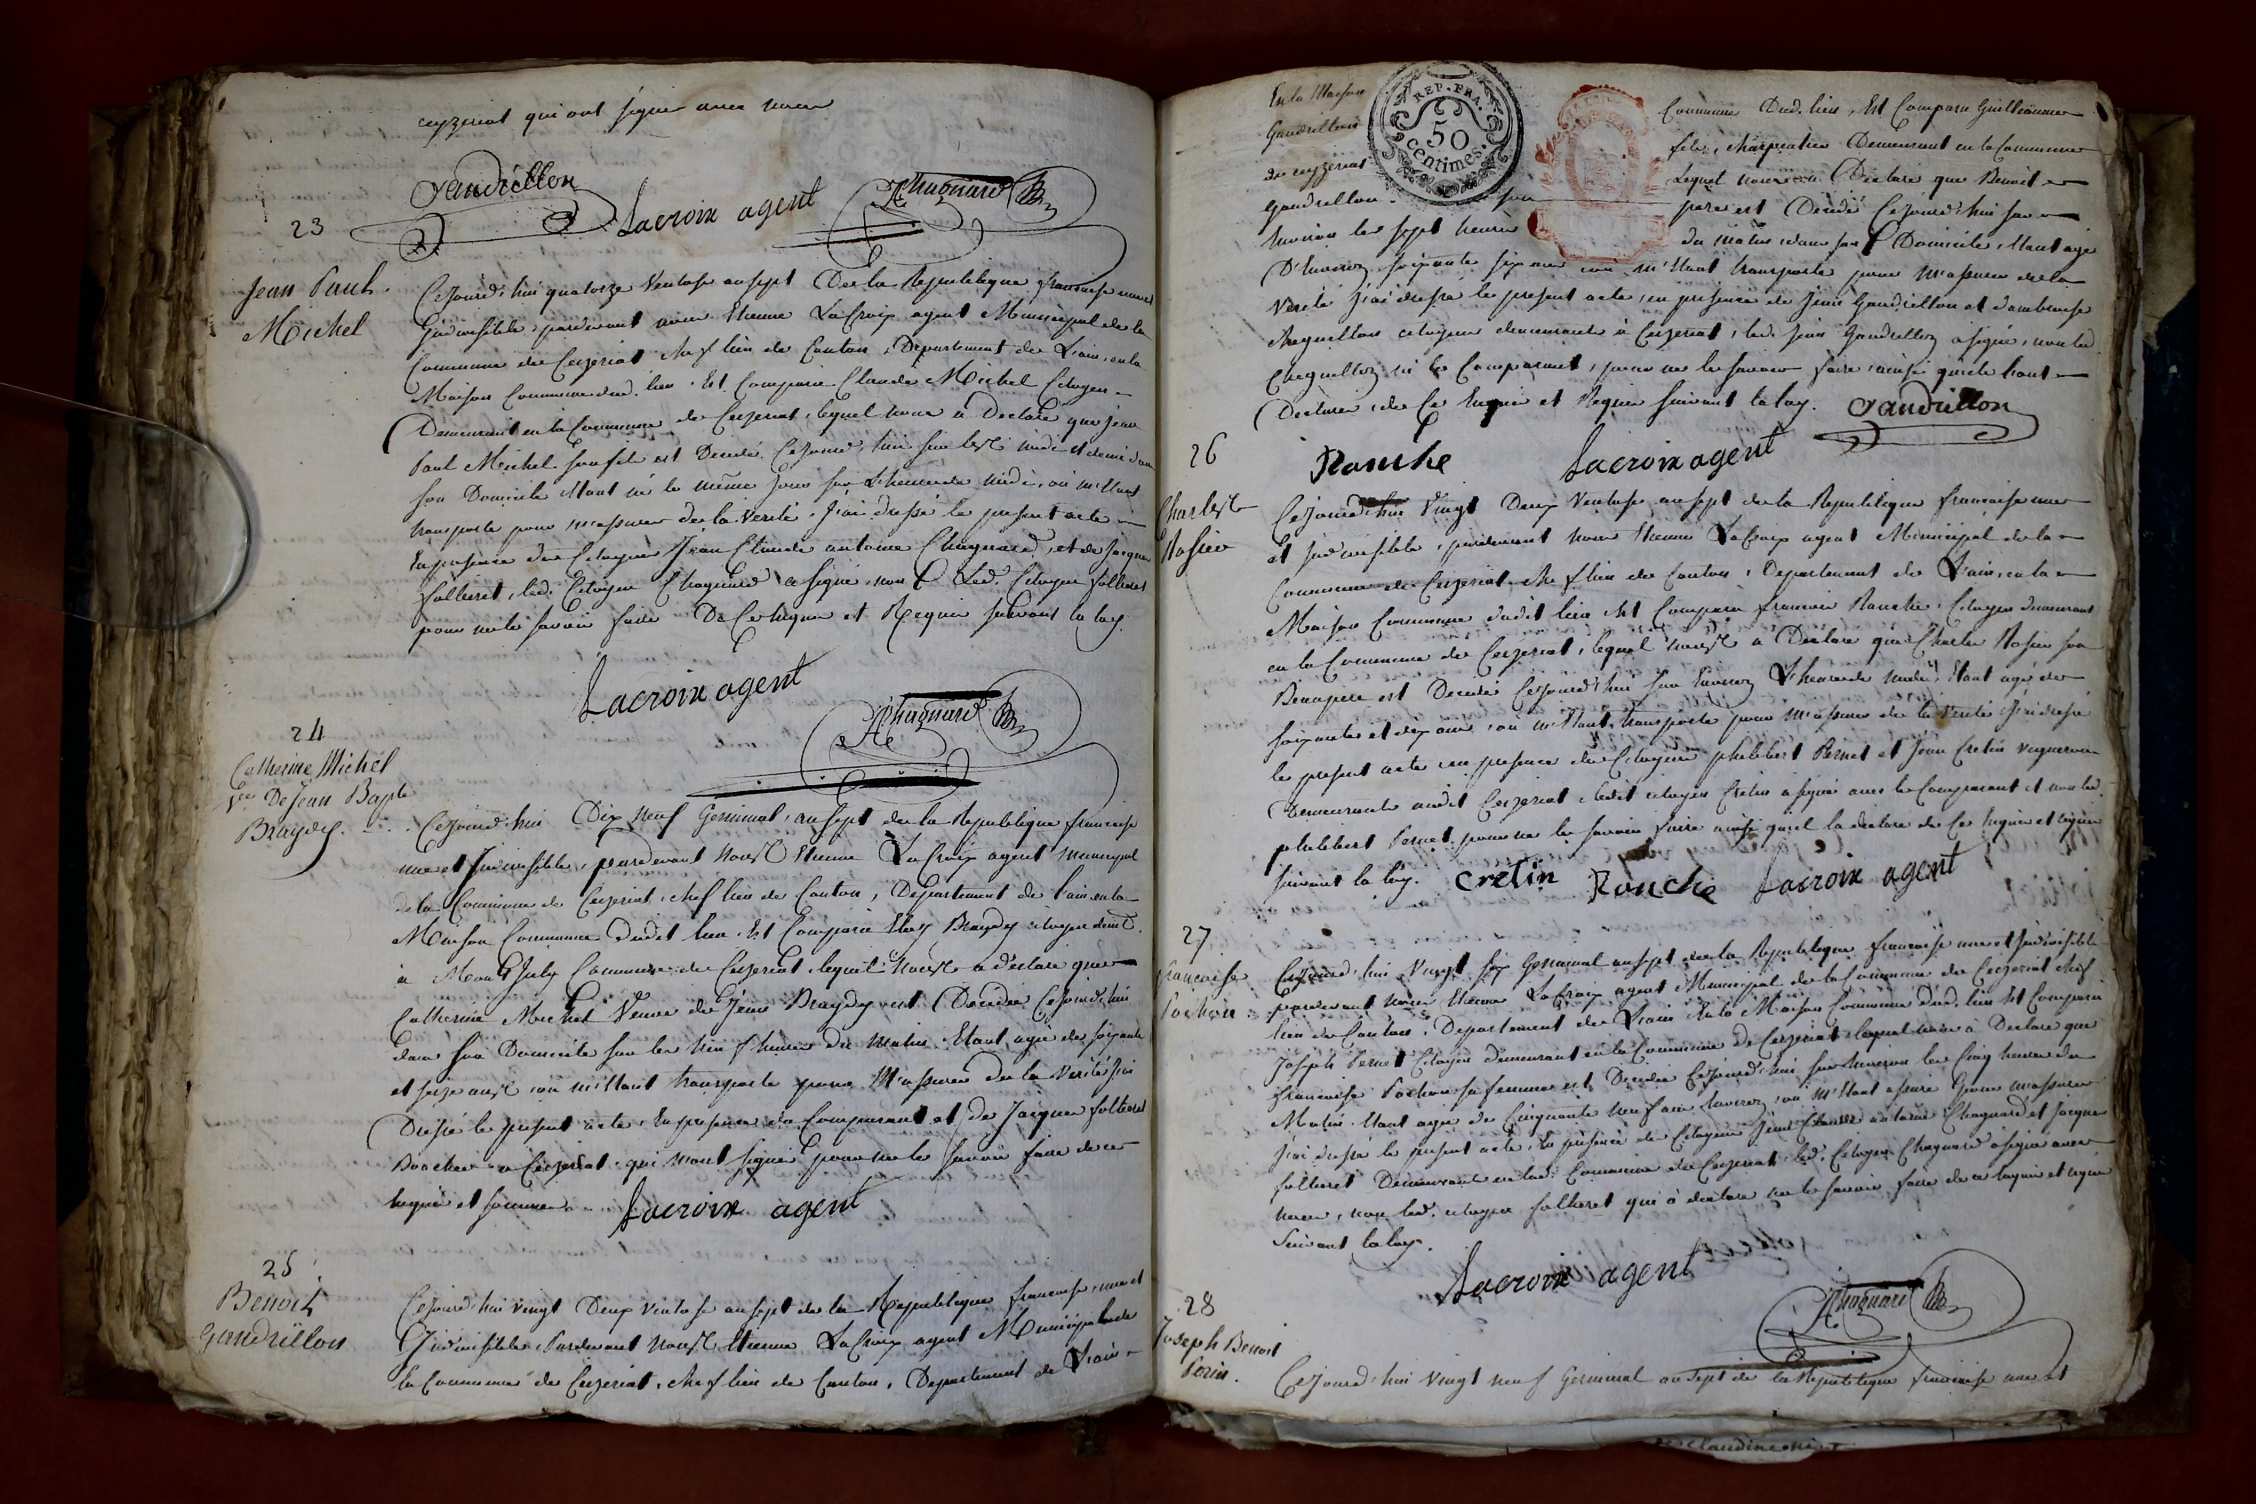 ceyzeriat qui ont signé avec nous
Gandrillon
Lacroix agent
Chagnard
23
Jean Paul
Michel
Cejourd'hui quatorze Ventose an sept De la Republique francaise une et
Indivisible, pardevant nous Etienne LaCroix agent Municipal de la
Commune de Ceyzeriat chef lieu de Canton, Departement de L'ain, en la
Maison Commune dud. lieu. Est Comparu Claude Michel Citoyen
Demeurant en la Commune de Ceyzeriat, lequel nous a Declaré que jean
Paul Michel son fils est Decedé Cejourd'hui sur les midi et demi dans
son Domicile étant né le même jour sur L'heure de midi, où m'étant
transporté pour m'assurer de la Verité. J'ai dressé le present acte
En presence des Citoyens Jean Claude antoine Chagnard, et de Jacques
folliet, led. Citoyen Chagnard a signé, non Led. Citoyen folliet
pour ne le savoir faire De Ce enquis et Requis suivant la loy.
Lacroix agent
Chagnard
24
Catherine Michel
Vve De Jean Bapte
Braydy
Cejourd'hui Dix neuf Germinal, an sept de la Republique francaise
une et Indivisible, pardevant nous Etienne LaCroix agent municipal
de la Commune de Ceyzeriat, chef lieu de Canton, Departement de L'ain en la
Maison Commune dudit lieu. Est Comparu Braydy citoyen demt.
à Mont July Commune de Ceyzeriat lequel nous a declaré que
Catherine Michel Veuve de Jean Braydy est Decedée Cejourd'hui
dans son Domicile sur les neuf heures du matin Etant agée de soixante
et seize ans où m'étant transporté pour M'assurer de la Verité j'ai
Dressé le present acte, En presence du Comparant et de Jacques folliet
a Ceyzeriat qui n'ont signé pour ne le savoir faire de ce
enquis et sommés
Lacroix agent
25
Benoit
Gandrillon
Cejourd'hui vingt Deux ventose an sept de la Republique francaise, une et
Indivisible, Pardevant nous Etienne LaCroix agent Municipal de
la Commune de Ceyzeriat, chef lieu de Canton, Departement de L'ain
En la Maison
Gandrillon
de ceyzeriat
Gandrillon. son
environ les sept heures
REP. FRA.
50
centimes.
Commune Dud. lieu, Est Comparu Guillaume
fils, charpentier Demeurant en la Commune
Lequel nous a Declaré que Benoit
pere est Decedé Cejourd'hui sur
du matin, dans son Domicile, étant agé
D'environ soixante six ans où m'étant transporté pour m'assurer de la
verité j'ai dressé le present acte, en presence de Jean Gandrillon et d'ambroise
citoyens demeurants à Ceyzeriat, led. Jean Gandrillon a signé, non led.
ni le Comparant, pour ne le savoir faire ainsi qu'ils l'ont
Declaré, de Ce Enquis et Requis suivant la loy.
Gandrillon
Ranche
Lacroix agent
26
Charles
Rosier
Cejourd'hui Vingt Deux Ventose an sept de la Republique francaise une
et Indivisible, pardevant nous Etienne LaCroix agent Municipal de la
Commune de Ceyzeriat chef lieu de Canton, Departement de L'ain, en la
Maison Commune dudit lieu Est Comparu francois Ranche, Citoyen demeurant
en la Commune de Ceyzeriat, lequel nous a Declaré que Charles Rosier son
Beaupere est Decedé Cejourd'hui sur Environ L'heure de midi, Etant agé de
soixante et dix ans, où m'étant transporté pour m'assurer de la Verité j'ai dressé
le present acte en presence des Citoyens philibert Pernet et Jean Cretin vigneron
Demeurants audit Ceyzeriat, ledit citoyen Cretin a signé avec le Comparant et non led.
philibert Pernet pour ne le savoir faire ainsi qu'il la declaré de Ce Enquis et requis
suivant la loy.
Cretin Ranche Lacroix agent
27
francoise
Pochon
Cejourd'hui Vingt six Germinal an sept de la Republique francaise une et Indivisible
pardevant nous Etienne LaCroix agent Municipal de la Commune de Ceyzeriat chef
lieu de Canton, Departement de L'ain En la Maison Commune dud. lieu Est Comparu
Joseph Pernet Citoyen demeurant en la Commune de Ceyzeriat, lequel nous a Declaré que
francoise Pochon sa femme est Decedée Cejourd'hui sur environ les Cinq heures du
Matin. étant agée de Cinquante neuf ans environ, où m'étant pour m'assurer
j'ai dressé le present acte, En presence des Citoyens Jean Claude antoine Chagnard et Jacques
folliet Demeurants en lad. Commune de Ceyzeriat, led. Citoyen Chagnard a signé avec
nous, non led. citoyen folliet qui a declaré ne le savoir faire de ce enquis et requis
Suivant la loy.
Lacroix agent
Chagnard
28
Joseph Benoit
Perin.
Cejourd'hui vingt neuf Germinal an Sept de la Republique francaise une et